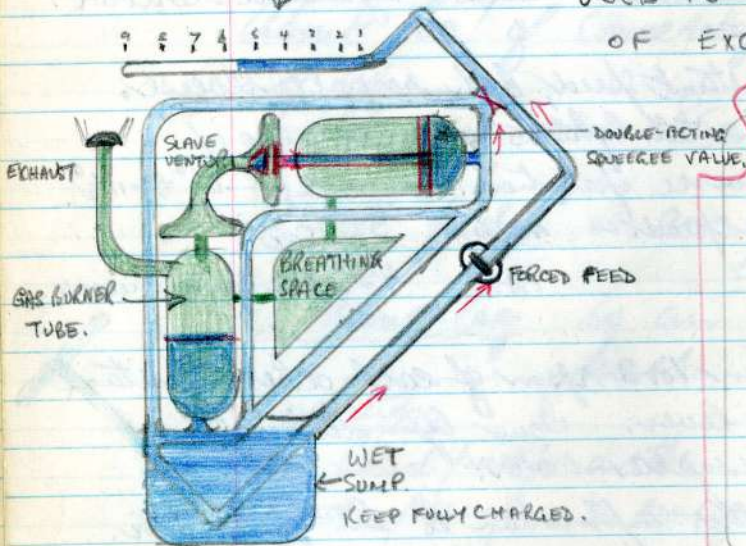 OF EXC
9 8 7 6 5 4 3 2 1
EXHAUST
SLAVE
VENTURI
DOUBLE-ACTING
SQUEEGEE VALVE.
BREATHING
SPACE
FORCED FEED
GAS BURNER
TUBE.
WET
SUMP.
KEEP FULLY CHARGED.